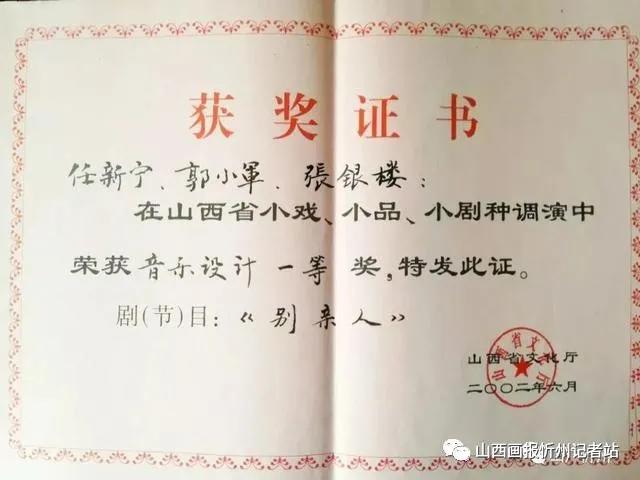 获奖证书
任新宁、郭小軍、張银楼：
在山西省小戏、小品、小剧种调演中
荣获音乐设计一等奖，特发此证。
剧(节)目：《别亲人》
山西省文化厅
二〇〇二年六月
山西省文化厅
山西画报忻州记者站